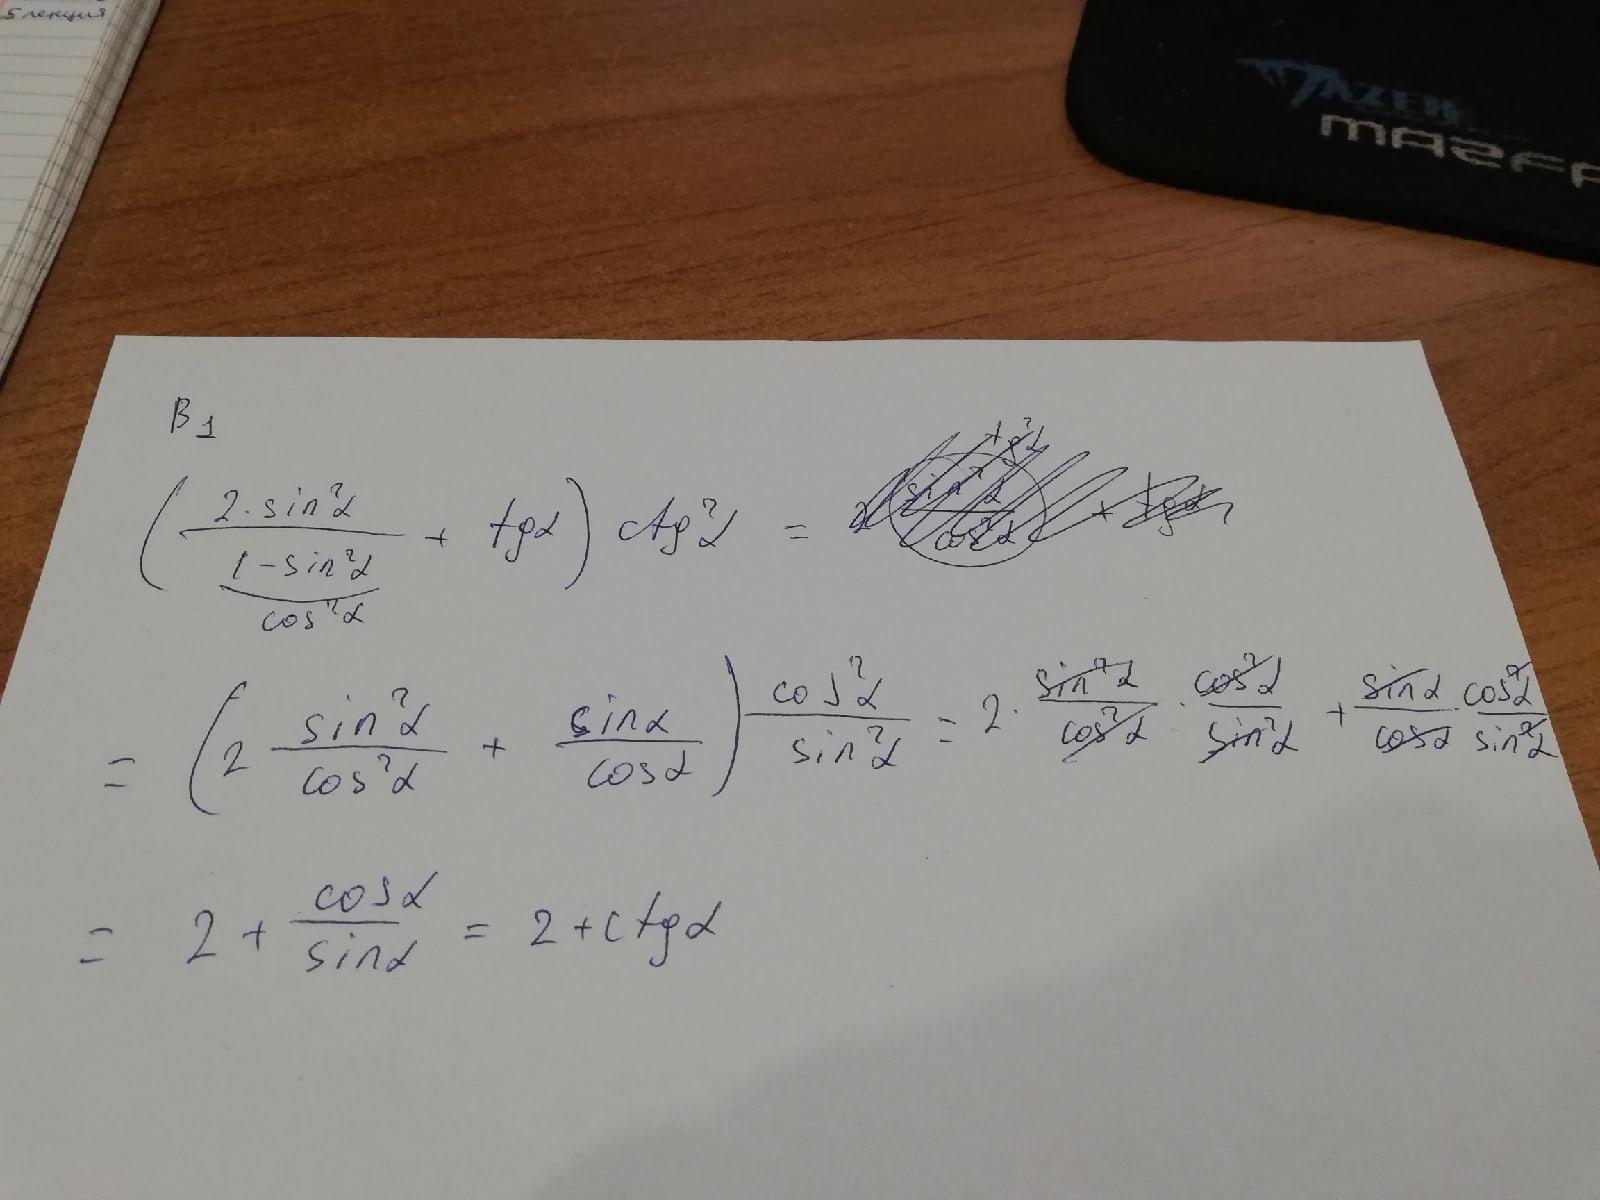 5 лекция
MAZER
MAZFA
B1
(2·sin²α / 1-sin²α + tgα) ctg²α =
cos²α
= (2 sin²α / cos²α + sinα / cosα) cos²α / sin²α = 2· sin²α / cos²α · cos²α / sin²α + sinα / cosα · cos²α / sin²α
= 2 + cosα / sinα = 2+ctgα